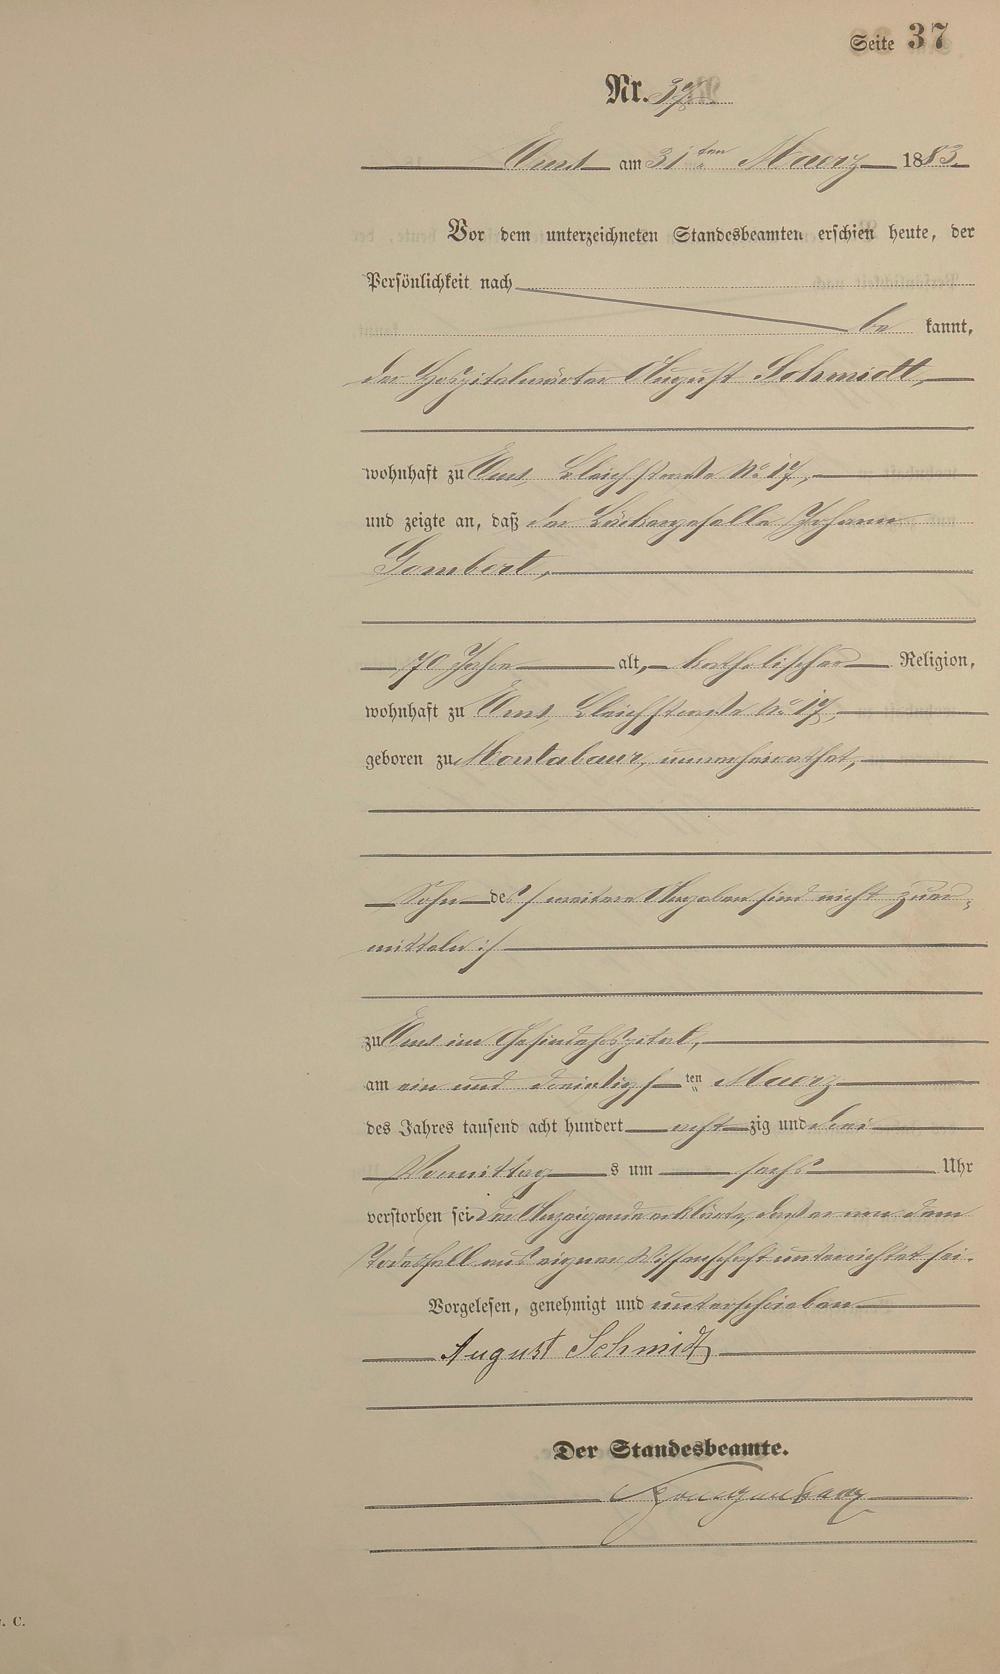 Seite 37
Nr. 37.
Ems am 31 ten Maerz 1883.
Vor dem unterzeichneten Standesbeamten erschien heute, der
Persönlichkeit nach
be kannt,
der Hospitalwärter August Schmidt,
wohnhaft zu Ems, Bleichstraße No 17,
und zeigte an, daß der Bäckergeselle Johann
Gombert,
70 Jahre alt, katholischer Religion,
wohnhaft zu Ems, Bleichstraße No 17,
geboren zu Montabaur, unverheirathet,
Sohn des /: weitere Angaben sind nicht zu er-
mitteln :/
zu Ems im Gesindehospital,
am ein und dreißigsten Maerz
des Jahres tausend acht hundert acht zig und drei
Vormittag s um sechs Uhr
verstorben sei. Der Anzeigende erklärte, daß er von dem
Todesfall aus eigner Wissenschaft unterrichtet sei.
Vorgelesen, genehmigt und unterschrieben
August Schmidt
Der Standesbeamte.
C.